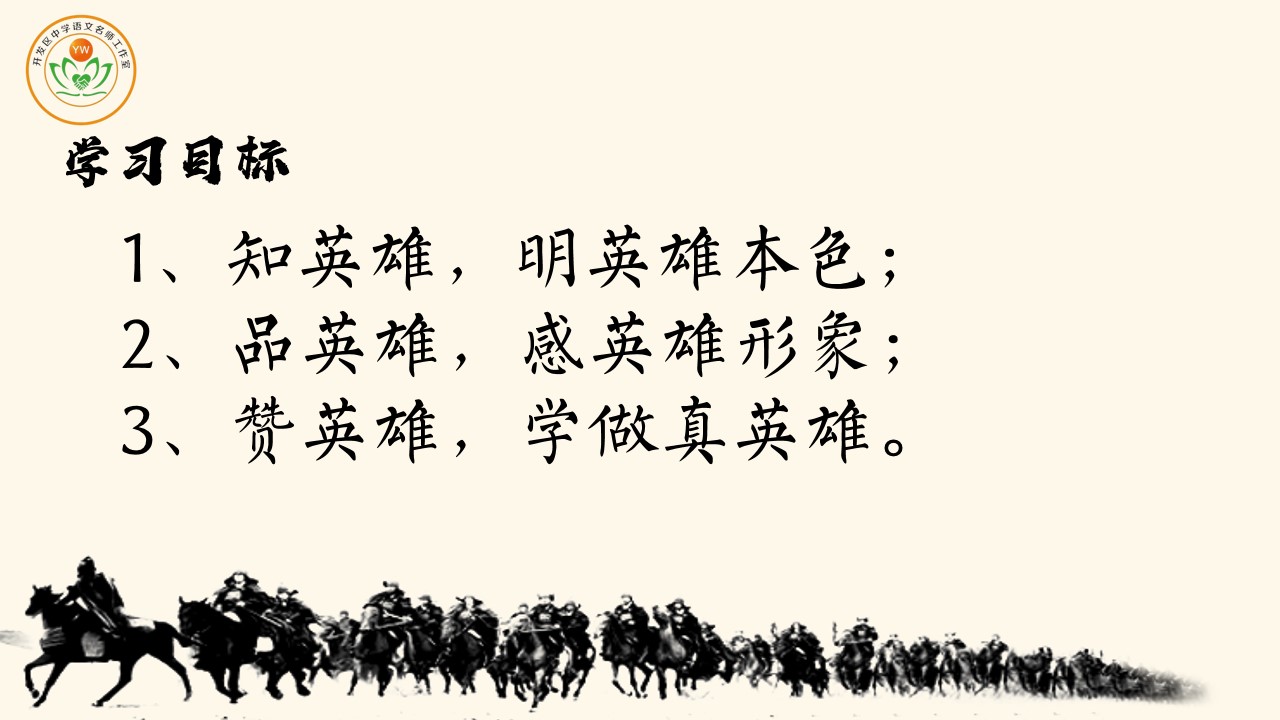 开发区中学语文名师工作室
YW
学习目标
1、知英雄，明英雄本色；
2、品英雄，感英雄形象；
3、赞英雄，学做真英雄。